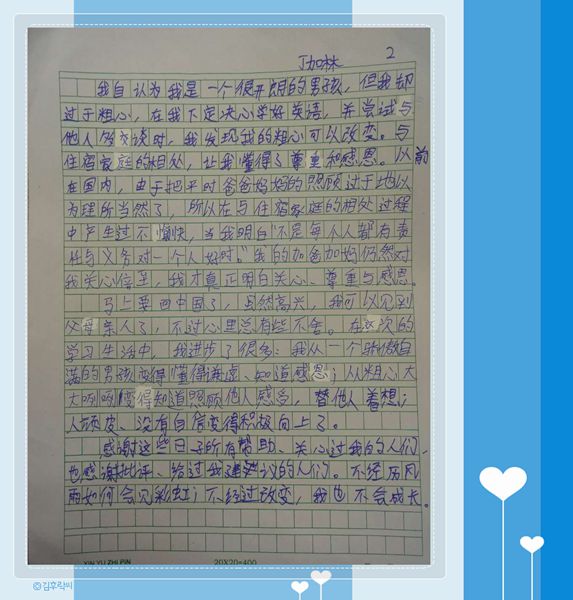 丁加林 2
我自认为我是一个很开朗的男孩，但我却
过于粗心，在我下定决心学好英语，并尝试与
他人多交谈时，我发现我的粗心可以改变。与
住宿家庭的相处，让我懂得了尊重和感恩。以前
在国内，由于把平时爸爸妈妈的照顾过于地以
为理所当然了，所以在与住宿家庭的相处过程
中产生过不愉快，当我明白"不是每个人都有责
任与义务对一个人好时。"我的加爸加妈仍然对
我关心倍至，我才真正明白关心、尊重与感恩。
马上要回中国了，虽然高兴，我可以见到
父母亲人了，不过心里总有些不舍。在这次的
学习生活中，我进步了很多：我从一个骄傲自
满的男孩变得懂得谦虚、知道感恩；从粗心大
大咧咧变得知道照顾他人感受，替他人着想；
从顽皮、没有自信变得积极向上了。
感谢这些日子所有帮助、关心过我的人们，
也感谢批评、给过我建议的人们。不经历风
雨如何会见彩虹；不经过改变，我也不会成长。
XIN YU ZHI PIN 20X20=400
©김후락씨